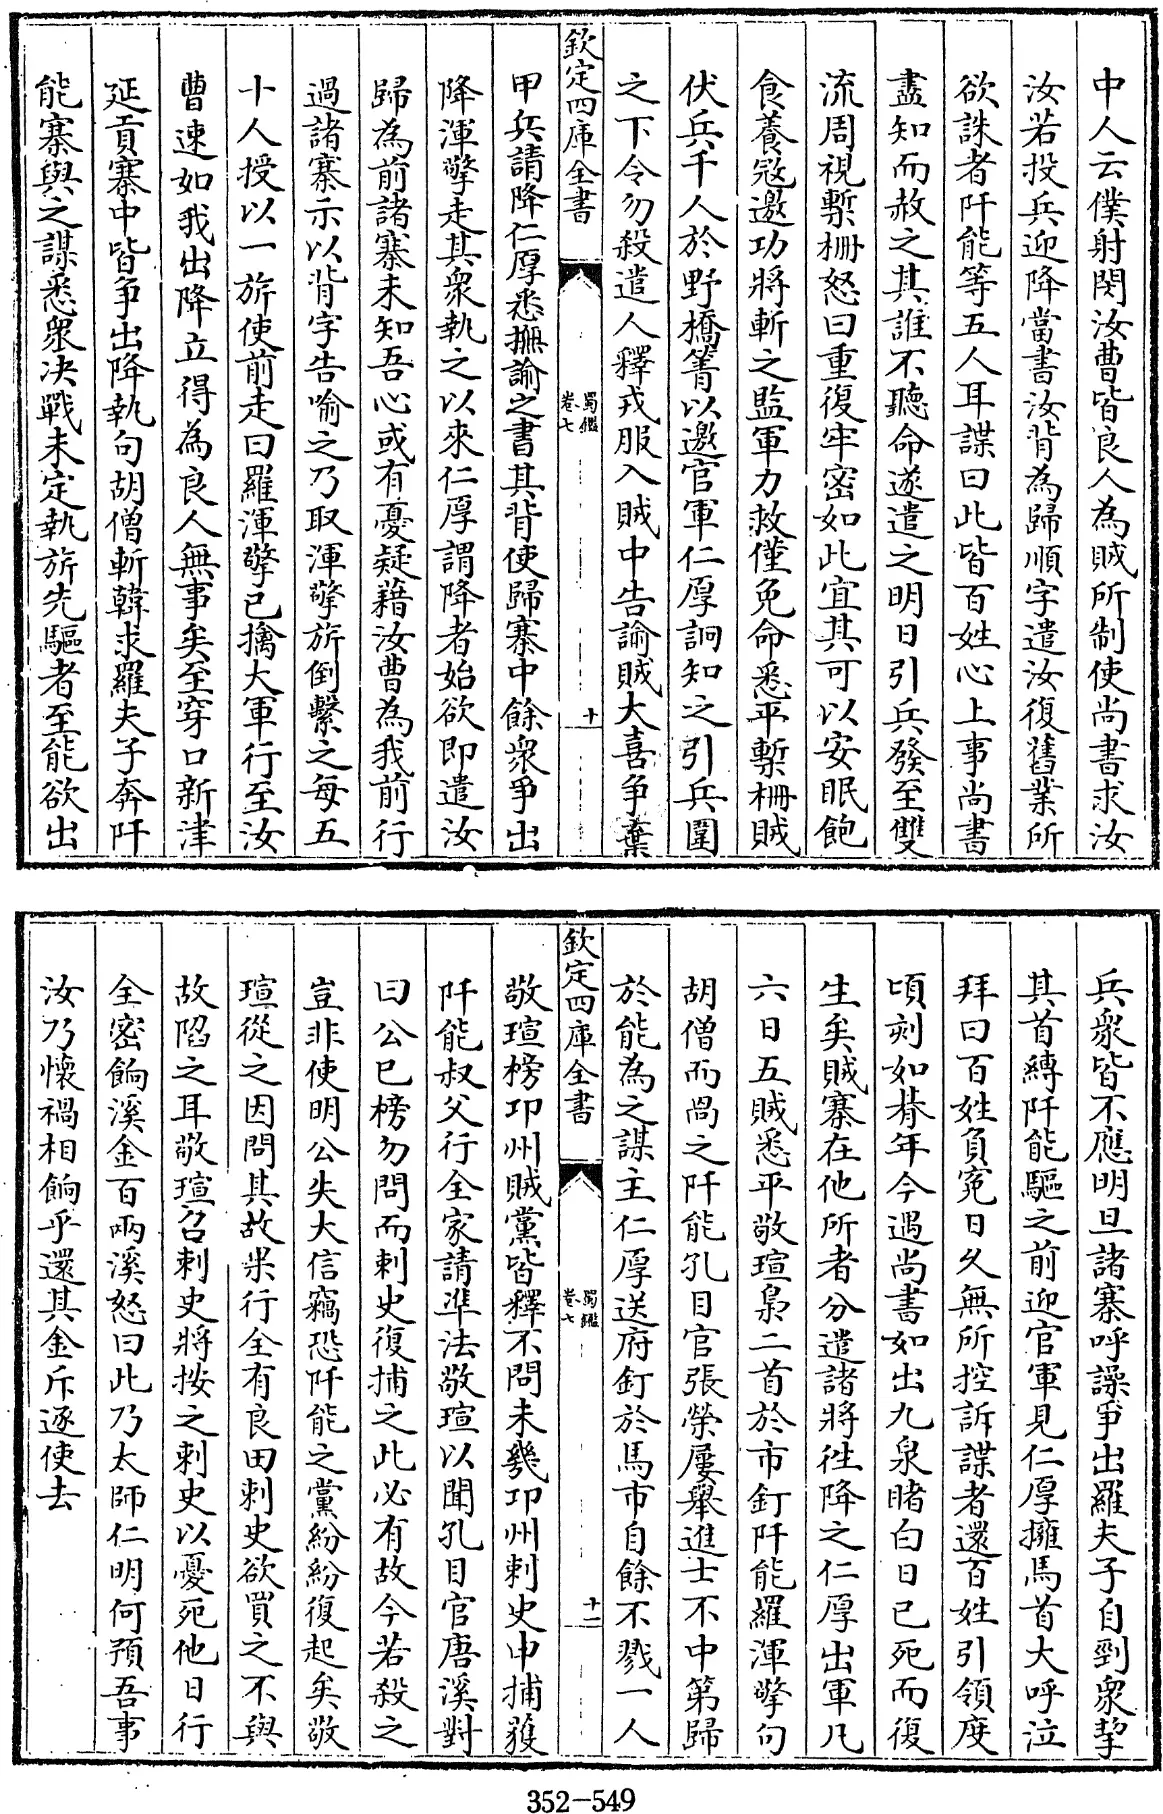 中人云僕射閔汝曹皆良人為賊所制使尚書求汝
汝若投兵迎降當書汝背為歸順字遣汝復舊業所
欲誅者阡能等五人耳諜曰此皆百姓心上事尚書
盡知而赦之其誰不聽命遂遣之明日引兵發至雙
流周視塹柵怒曰重復牢密如此宜其可以安眠飽
食養宼邀功將斬之監軍力救僅免命悉平塹柵賊
伏兵千人於野橋箐以邀官軍仁厚詗知之引兵圍
之下令勿殺遣人釋戎服入賊中告諭賊大喜争棄
欽定四庫全書
蜀鑑
卷七
十
甲兵請降仁厚悉撫諭之書其背使歸寨中餘衆爭出
降渾擎走其衆執之以來仁厚謂降者始欲即遣汝
歸為前諸寨未知吾心或有憂疑藉汝曹為我前行
過諸寨示以背字告喻之乃取渾擎旂倒繫之每五
十人授以一旂使前走曰羅渾擎已擒大軍行至汝
曹速如我出降立得為良人無事矣至穿口新津
延貢寨中皆争出降執句胡僧斬韓求羅夫子奔阡
能寨與之謀悉衆決戰未定執旂先驅者至能欲出
兵衆皆不應明旦諸寨呼譟爭出羅夫子自剄衆挈
其首縛阡能驅之前迎官軍見仁厚擁馬首大呼泣
拜曰百姓負寃日久無所控訴諜者還百姓引領度
頃刻如朞年今遇尚書如出九泉睹白日已死而復
生矣賊寨在他所者分遣諸將徃降之仁厚出軍凡
六日五賊悉平敬瑄梟二首於市釘阡能羅渾擎句
胡僧而咼之阡能孔目官張榮屢舉進士不中第歸
於能為之謀主仁厚送府釘於馬市自餘不戮一人
欽定四庫全書
蜀鑑
卷七
十一
敬瑄榜邛州賊黨皆釋不問未幾邛州刺史申捕獲
阡能叔父行全家請準法敬瑄以聞孔目官唐溪對
曰公已榜勿問而刺史復捕之此必有故今若殺之
豈非使明公失大信竊恐阡能之黨紛紛復起矣敬
瑄從之因問其故果行全有良田刺史欲買之不與
故陷之耳敬瑄召刺史將按之刺史以憂死他日行
全密餉溪金百兩溪怒曰此乃太師仁明何預吾事
汝乃懷禍相餉乎還其金斥逐使去
352-549